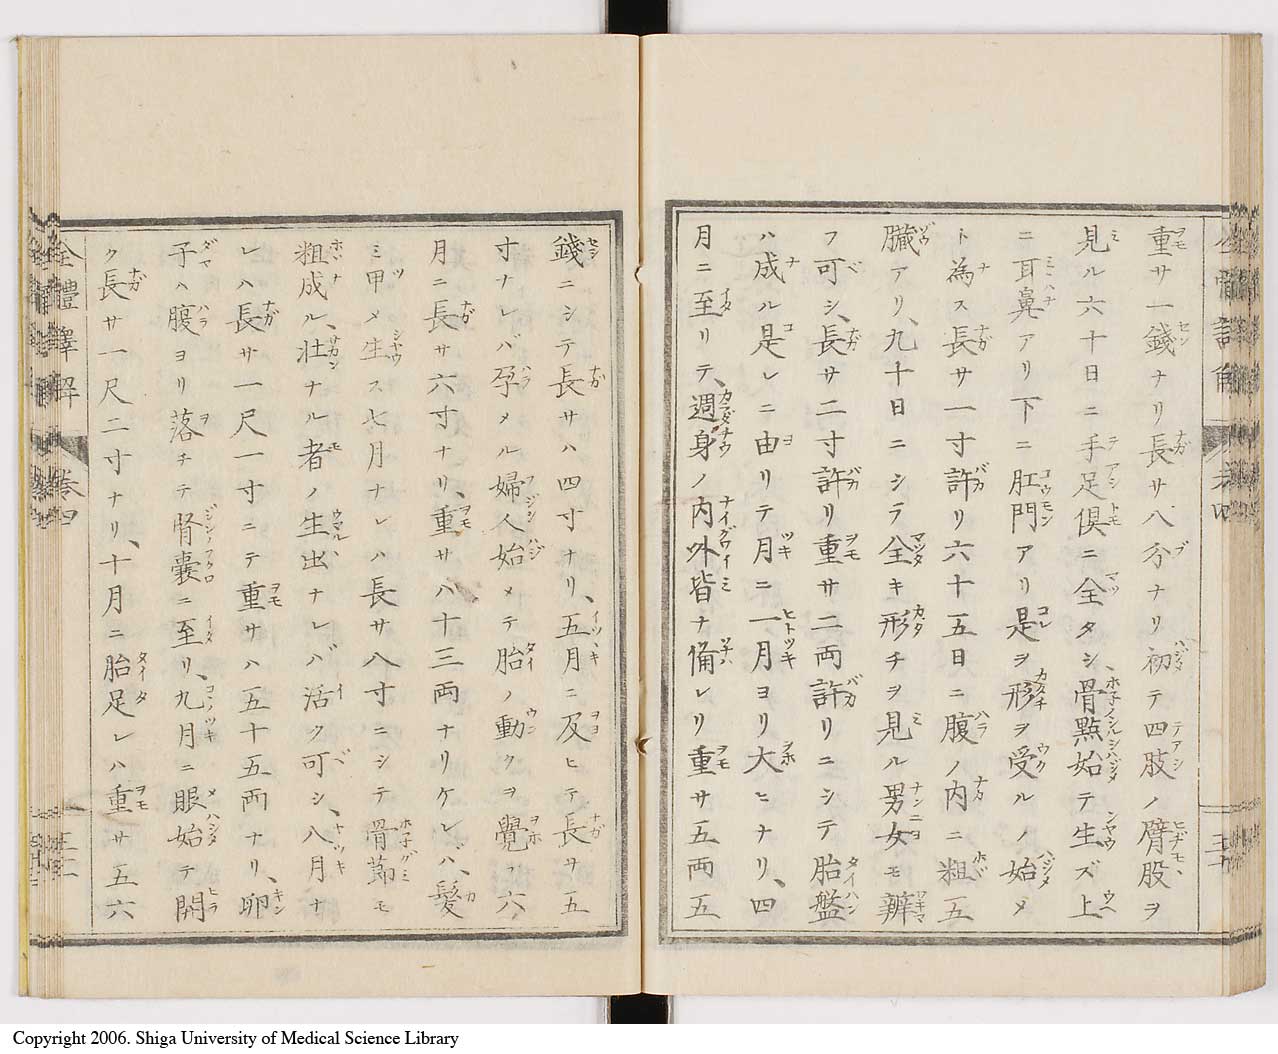 重サ一錢ナリ長サ八分ナリ初テ四肢ノ臂股ヲ
見ル六十日ニ手足倶ニ全タシ、骨點始テ生ズ上
ニ耳鼻アリ下ニ肛門アリ是ヲ形ヲ受ルノ始メ
ト為ス長サ一寸許リ六十五日ニ腹ノ内ニ粗五
臓アリ、九十日ニシテ全キ形チヲ見ル男女モ辨
フ可シ、長サ二寸許リ重サ二両許リニシテ胎盤
ハ成ル是レニ由リテ月ニ一月ヨリ大ヒナリ、四
月ニ至リテ、週身ノ内外皆ナ備レリ重サ五両五
錢ニシテ長サハ四寸ナリ、五月ニ及ヒテ長サ五
寸ナレバ孕メル婦人始メテ胎ノ動クヲ覺フ六
月ニ長サ六寸ナリ、重サ八十三両ナリケレハ、髪
ミ甲メ生ス七月ナレハ長サ八寸ニシテ骨節モ
粗成ル、壮ナル者ノ生出ナレバ活ク可シ、八月ナ
レハ長サ一尺一寸ニテ重サハ五十五両ナリ、卵
子ハ腹ヨリ落チテ腎嚢ニ至リ、九月ニ眼始テ開
ク長サ一尺二寸ナリ、十月ニ胎足レハ重サ五六
全體譯解 巻四
Copyright 2006. Shiga University of Medical Science Library